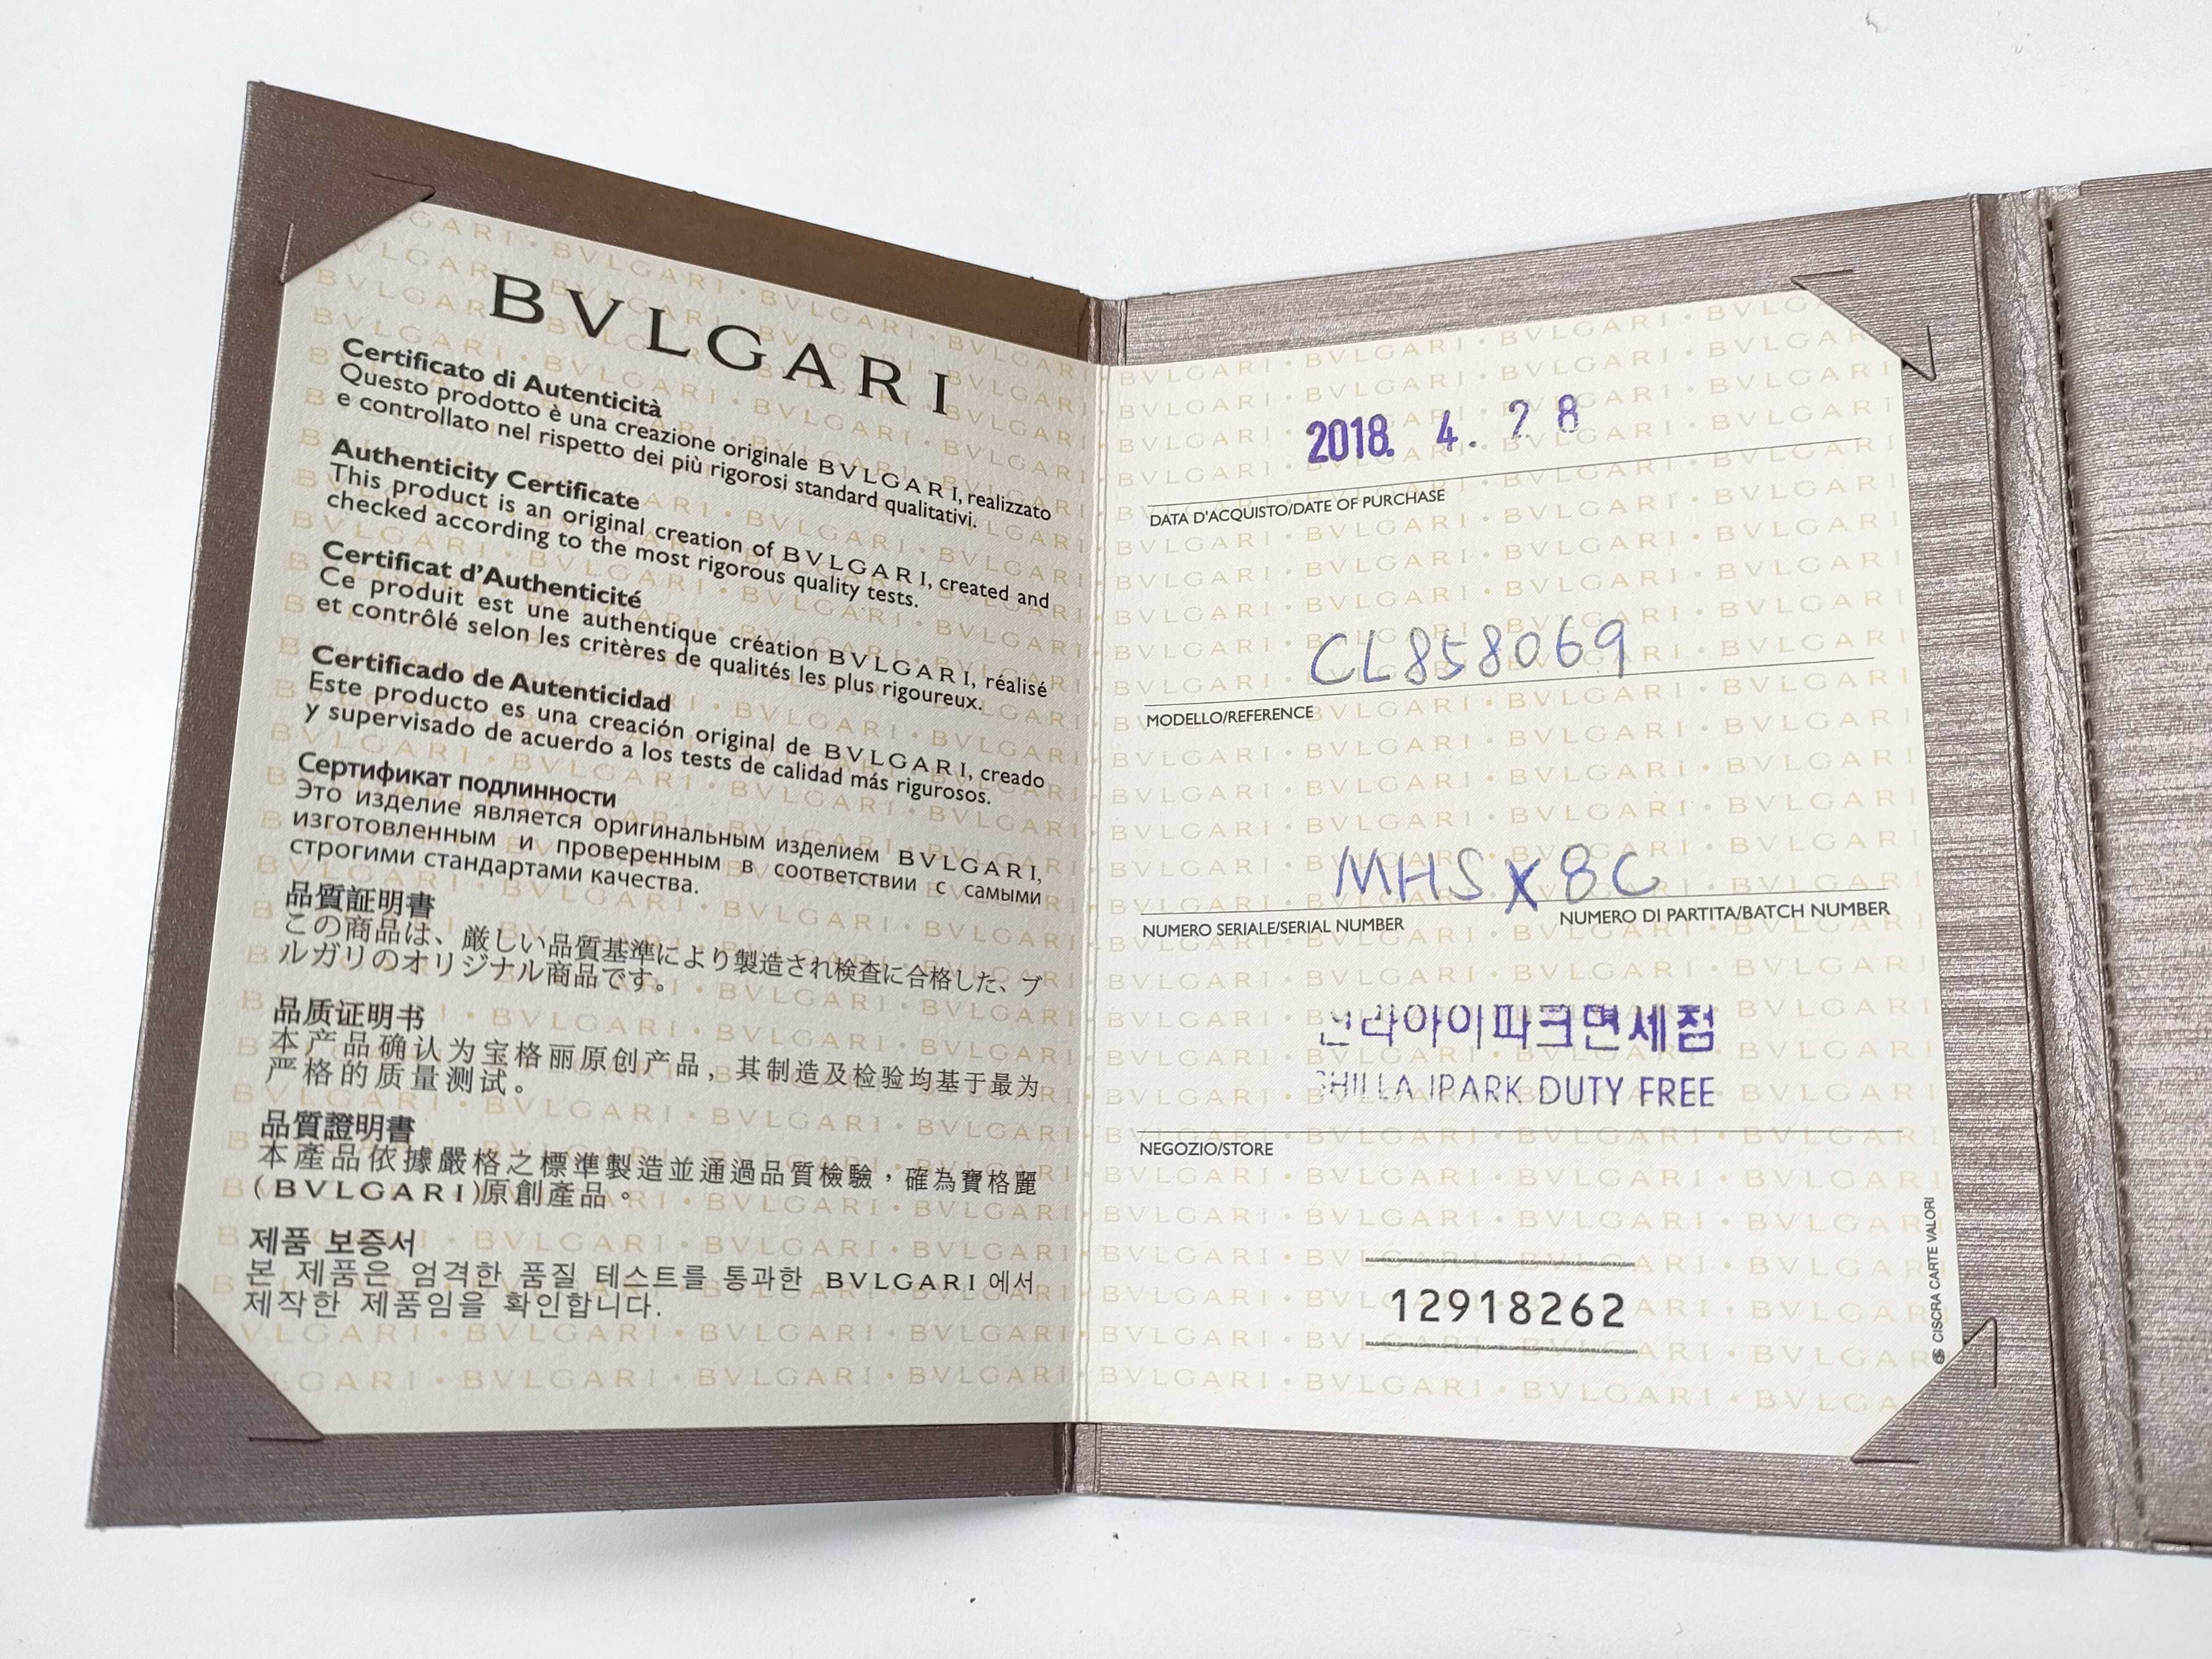 BVLGARI
Certificato di Autenticità
Questo prodotto è una creazione originale BVLGARI, realizzato
e controllato nel rispetto dei più rigorosi standard qualitativi.
Authenticity Certificate
This product is an original creation of BVLGARI, created and
checked according to the most rigorous quality tests.
Certificat d'Authenticité
Ce produit est une authentique création BVLGARI, réalisé
et contrôlé selon les critères de qualités les plus rigoureux.
Certificado de Autenticidad
Este producto es una creación original de BVLGARI, creado
y supervisado de acuerdo a los tests de calidad más rigurosos.
Сертификат подлинности
Это изделие является оригинальным изделием BVLGARI,
изготовленным и проверенным в соответствии с самыми
строгими стандартами качества.
品質証明書
この商品は、厳しい品質基準により製造され検査に合格した、ブ
ルガリのオリジナル商品です。
品质证明书
本产品确认为宝格丽原创产品，其制造及检验均基于最为
严格的质量测试。
品質證明書
本產品依據嚴格之標準製造並通過品質檢驗，確為寶格麗
(BVLGARI)原創產品。
제품 보증서
본 제품은 엄격한 품질 테스트를 통과한 BVLGARI 에서
제작한 제품임을 확인합니다.
2018. 4. 28
DATA D'ACQUISTO/DATE OF PURCHASE
CL858069
MODELLO/REFERENCE
MHSX8C
NUMERO SERIALE/SERIAL NUMBER NUMERO DI PARTITA/BATCH NUMBER
신라아이파크면세점
SHILLA IPARK DUTY FREE
NEGOZIO/STORE
12918262
CISCRA CARTE VALORI